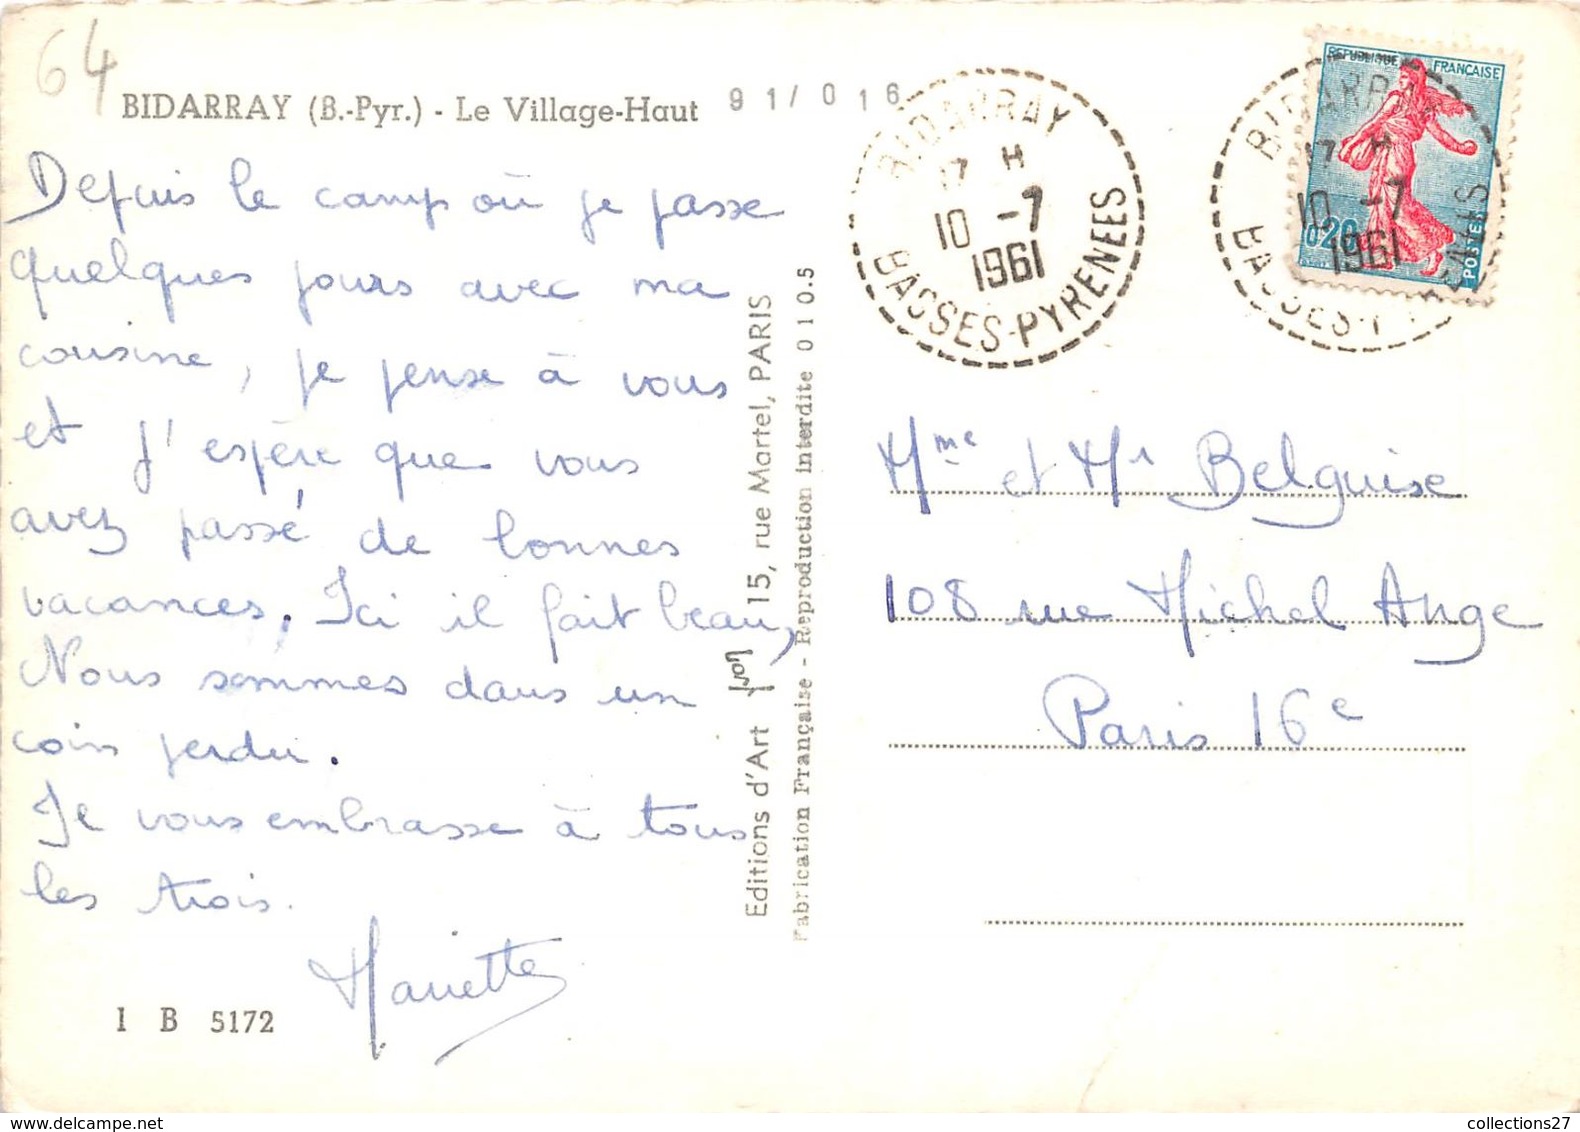 64
BIDARRAY (B.-Pyr.) - Le Village-Haut
91/016
Depuis le camp où je passe
quelques jours avec ma
cousine, je pense à vous
et j'espère que vous
avez passé de bonnes
vacances. Ici il fait beau,
Nous sommes dans un
coin perdu.
Je vous embrasse à tous
les trois.
Mariette
I B 5172
Editions d'Art yvon 15, rue Martel, PARIS
Fabrication Française - Reproduction interdite 0105
BIDARRAY
17 H
10 -7
1961
BASSES-PYRENEES
REPUBLIQUE FRANÇAISE
0,20
POSTES
BIDARRAY
17 H
10 -7
1961
BASSES-PYRENEES
Mme et Mr Belguise
108 rue Michel Ange
Paris 16e
collections27